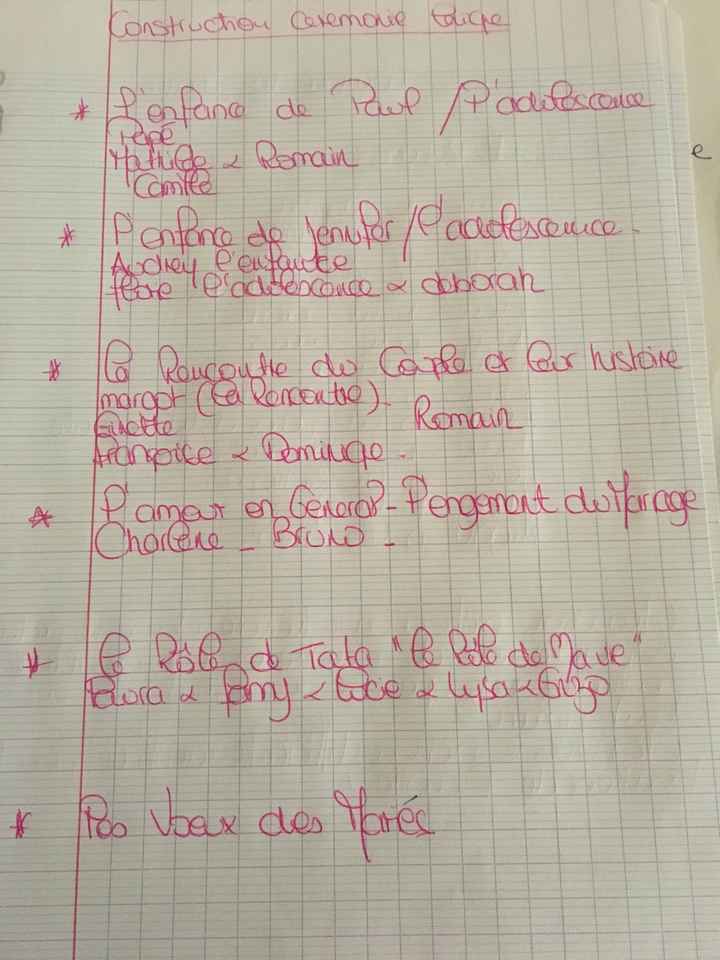 Construction Ceremonie laique
* l'enfance de Paul / l'adolescence
Pépé
Mathilde & Romain
Camille
e
* l'enfance de Jennifer / l'adolescence.
Audrey l'enfance
l'adolescence & deborah
* la Rencontre du Couple et leur histoire
margot (la Rencontre).
Ginette Romain
Françoise & Dominique.
* l'amour en General - l'engement du Mariage
Charlène - Bruno -
* le Rôle de Tata "le Rôle de
& Amy & Lucie & Lysa & Enzo
* les Voeux des Mariés